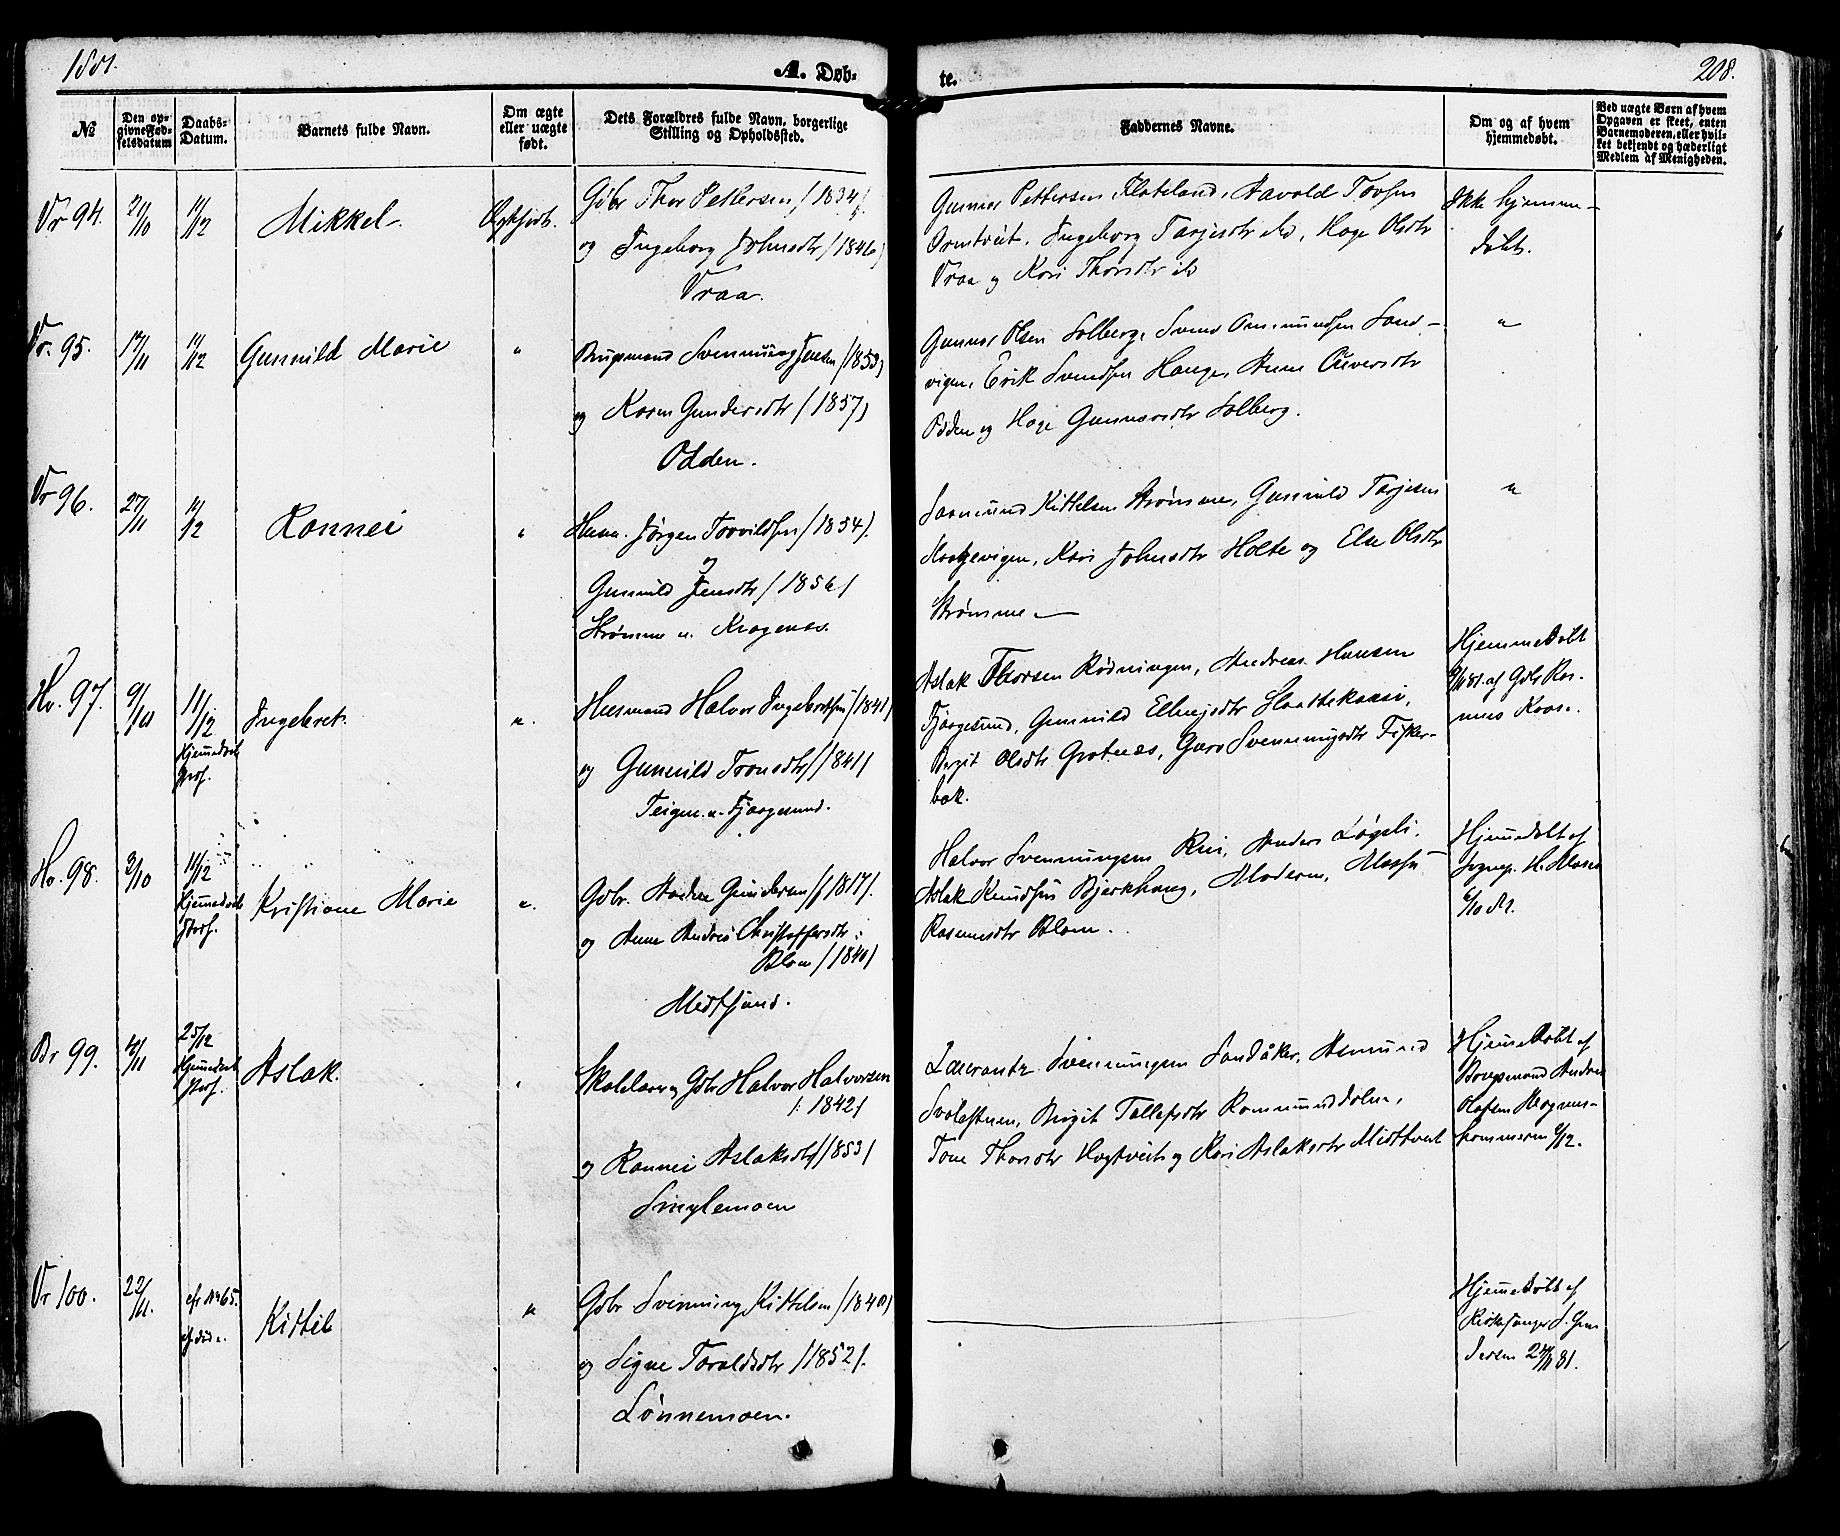 1881.
A. Døb-
te.
208.
No
Den op-
givne Fød-
selsdatum
Daabs-
Datum.
Barnets fulde Navn.
Om ægte
eller uægte
født.
Dets Forældres fulde Navn, borgerlige
Stilling og Opholdssted.
Faddernes Navne.
Om og af hvem
hjemmedøbt.
Ved uægte Børn af hvem
Opgaven er skeet, enten
Barnemoderen, eller hvil-
ket bekjendt og hæderligt
Medlem af Menigheden.
Vr 94.
21/10
11/12
Mikkel
Gbr Thor Pettersen /1834/.
og Ingeborg Johnsdtr /1846/
Vraa.
Gunnar Pettersen Flateland, Havold Tovsen
Ormtveit, Ingeborg Tarjesdtr do, Hage Olsdtr
Vraa og Kari Thorsdtr do
Ikke hjemme-
døbt.
Vr. 95.
17/11
11/12
Gunnild Marie
"
Brugsmand Svennung Jensen /1853/
og Karen Gundersdtr /1857/
Odden.
Gunnar Olsen Solberg, Svend Onmundsen Sand-
vigen, Erik Svendsen Hauge, Anne Oliversdtr
Odden og Hage Gunnarsdtr Solberg.
"
Vr 96.
27/11
11/12
Rannei
"
Husm. Jørgen Torvildsen /1854/.
og
Gunnild Jensdtr /1856/
Strømme u. Kragenæs.
Saamund Kittelsen Strømme, Gunnild Tarjesen
Kragevigen, Kari Johnsdtr Holte og Else Olsdtr
Strømme
"
Hv. 97.
9/10
11/12
Hjemmedøbt
Ingebret.
"
Husmand Halvor Ingebretsen /1841/
og Gunnild Tronsdtr /1841/
Teigen u. Fjaagesund.
Aslak Thorsen Rødningen, Andreas Hansen
Fjaagesund, Gunnild Ellevsdtr Slaattekaasi,
Birgit Olsdtr Grotnæs, Guro Svennungsdtr Fisker-
bæk.
Hjemmedøbt
9/10 81 af Gbr Ras-
mus Kaase.
Hv. 98.
3/10
11/12
Hjemmedøbt
Kristiane Marie
"
Gbr. Anders Gundersen /1817/.
og Anne Andrea Christoffersdtr
Blom /1840/
Midtsund.
Halvor Svennungsen Rui, Anders Løgsli,
Aslak Knudsen Bjerkhaug, Moderen, Maasse
Rasmusdtr Blom.
Hjemmedøbt af
Sognep. H. Moses
6/10
Br 99.
4/11
25/12
Hjemmedøbt
Aslak.
Skolelærer Gbr Halvor Halvorsen
/: 1842/
og Rannei Aslaksdtr /1853/
Singlemoen
Laurantz Svennungsen Sandåker, Asmund
Svalestuen, Birgit Tellefsdtr Romunddalen,
Tone Thorsdtr Hogtveit og Kari Aslaksdtr Midtveit
Hjemmedøbt af
Brugsmand Andreas
Olafsen Mogens-
hommeren 6/12.
Vr 100.
22/11.
cfr No 65.
af døde.
Kittil
"
Gbr Svennung Kittelsen /1840/
og Signe Taraldsdtr /1852/.
Lønnemoen.
Hjemmedøbt af
Kirkesanger S. Gun-
dersen 24/11 81.